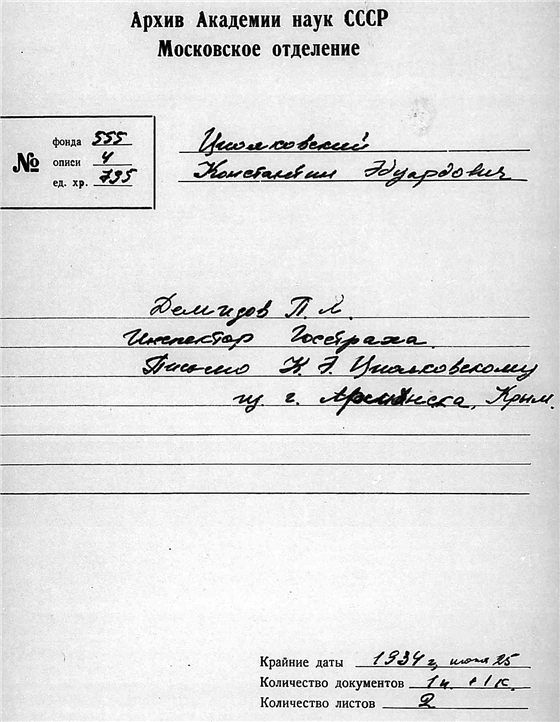 Архив Академии наук СССР
Московское отделение
№
фонда 555
описи 4
ед. хр. 795
Циолковский
Константин Эдуардович
Демидов П.
Инспектор Госстраха.
Письмо К. Э. Циолковскому
из г. Армянска, Крым.
Крайние даты 1934 г, 25
Количество документов 1 + 1 к.
Количество листов 2